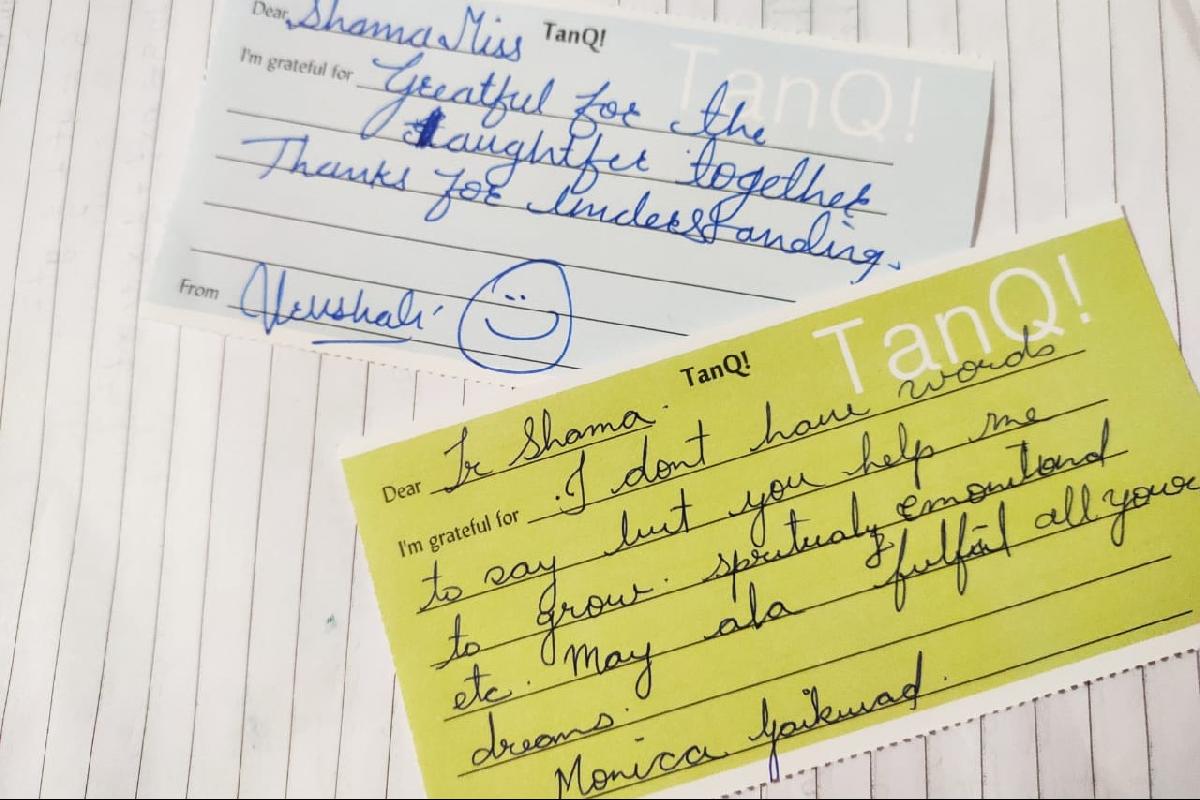 TanQ!
TanQ!
Dear Shama Miss
I'm grateful for Greatful for the
laughtfer together
Thanks for understanding.
From Vrushali
TanQ!
TanQ!
Dear Tr Shama.
I'm grateful for I dont have words
to say but you help me
to grow. sprutualy emonitiond
etc. May ala fulfill all your
dreams.
Monica Gaikwad.